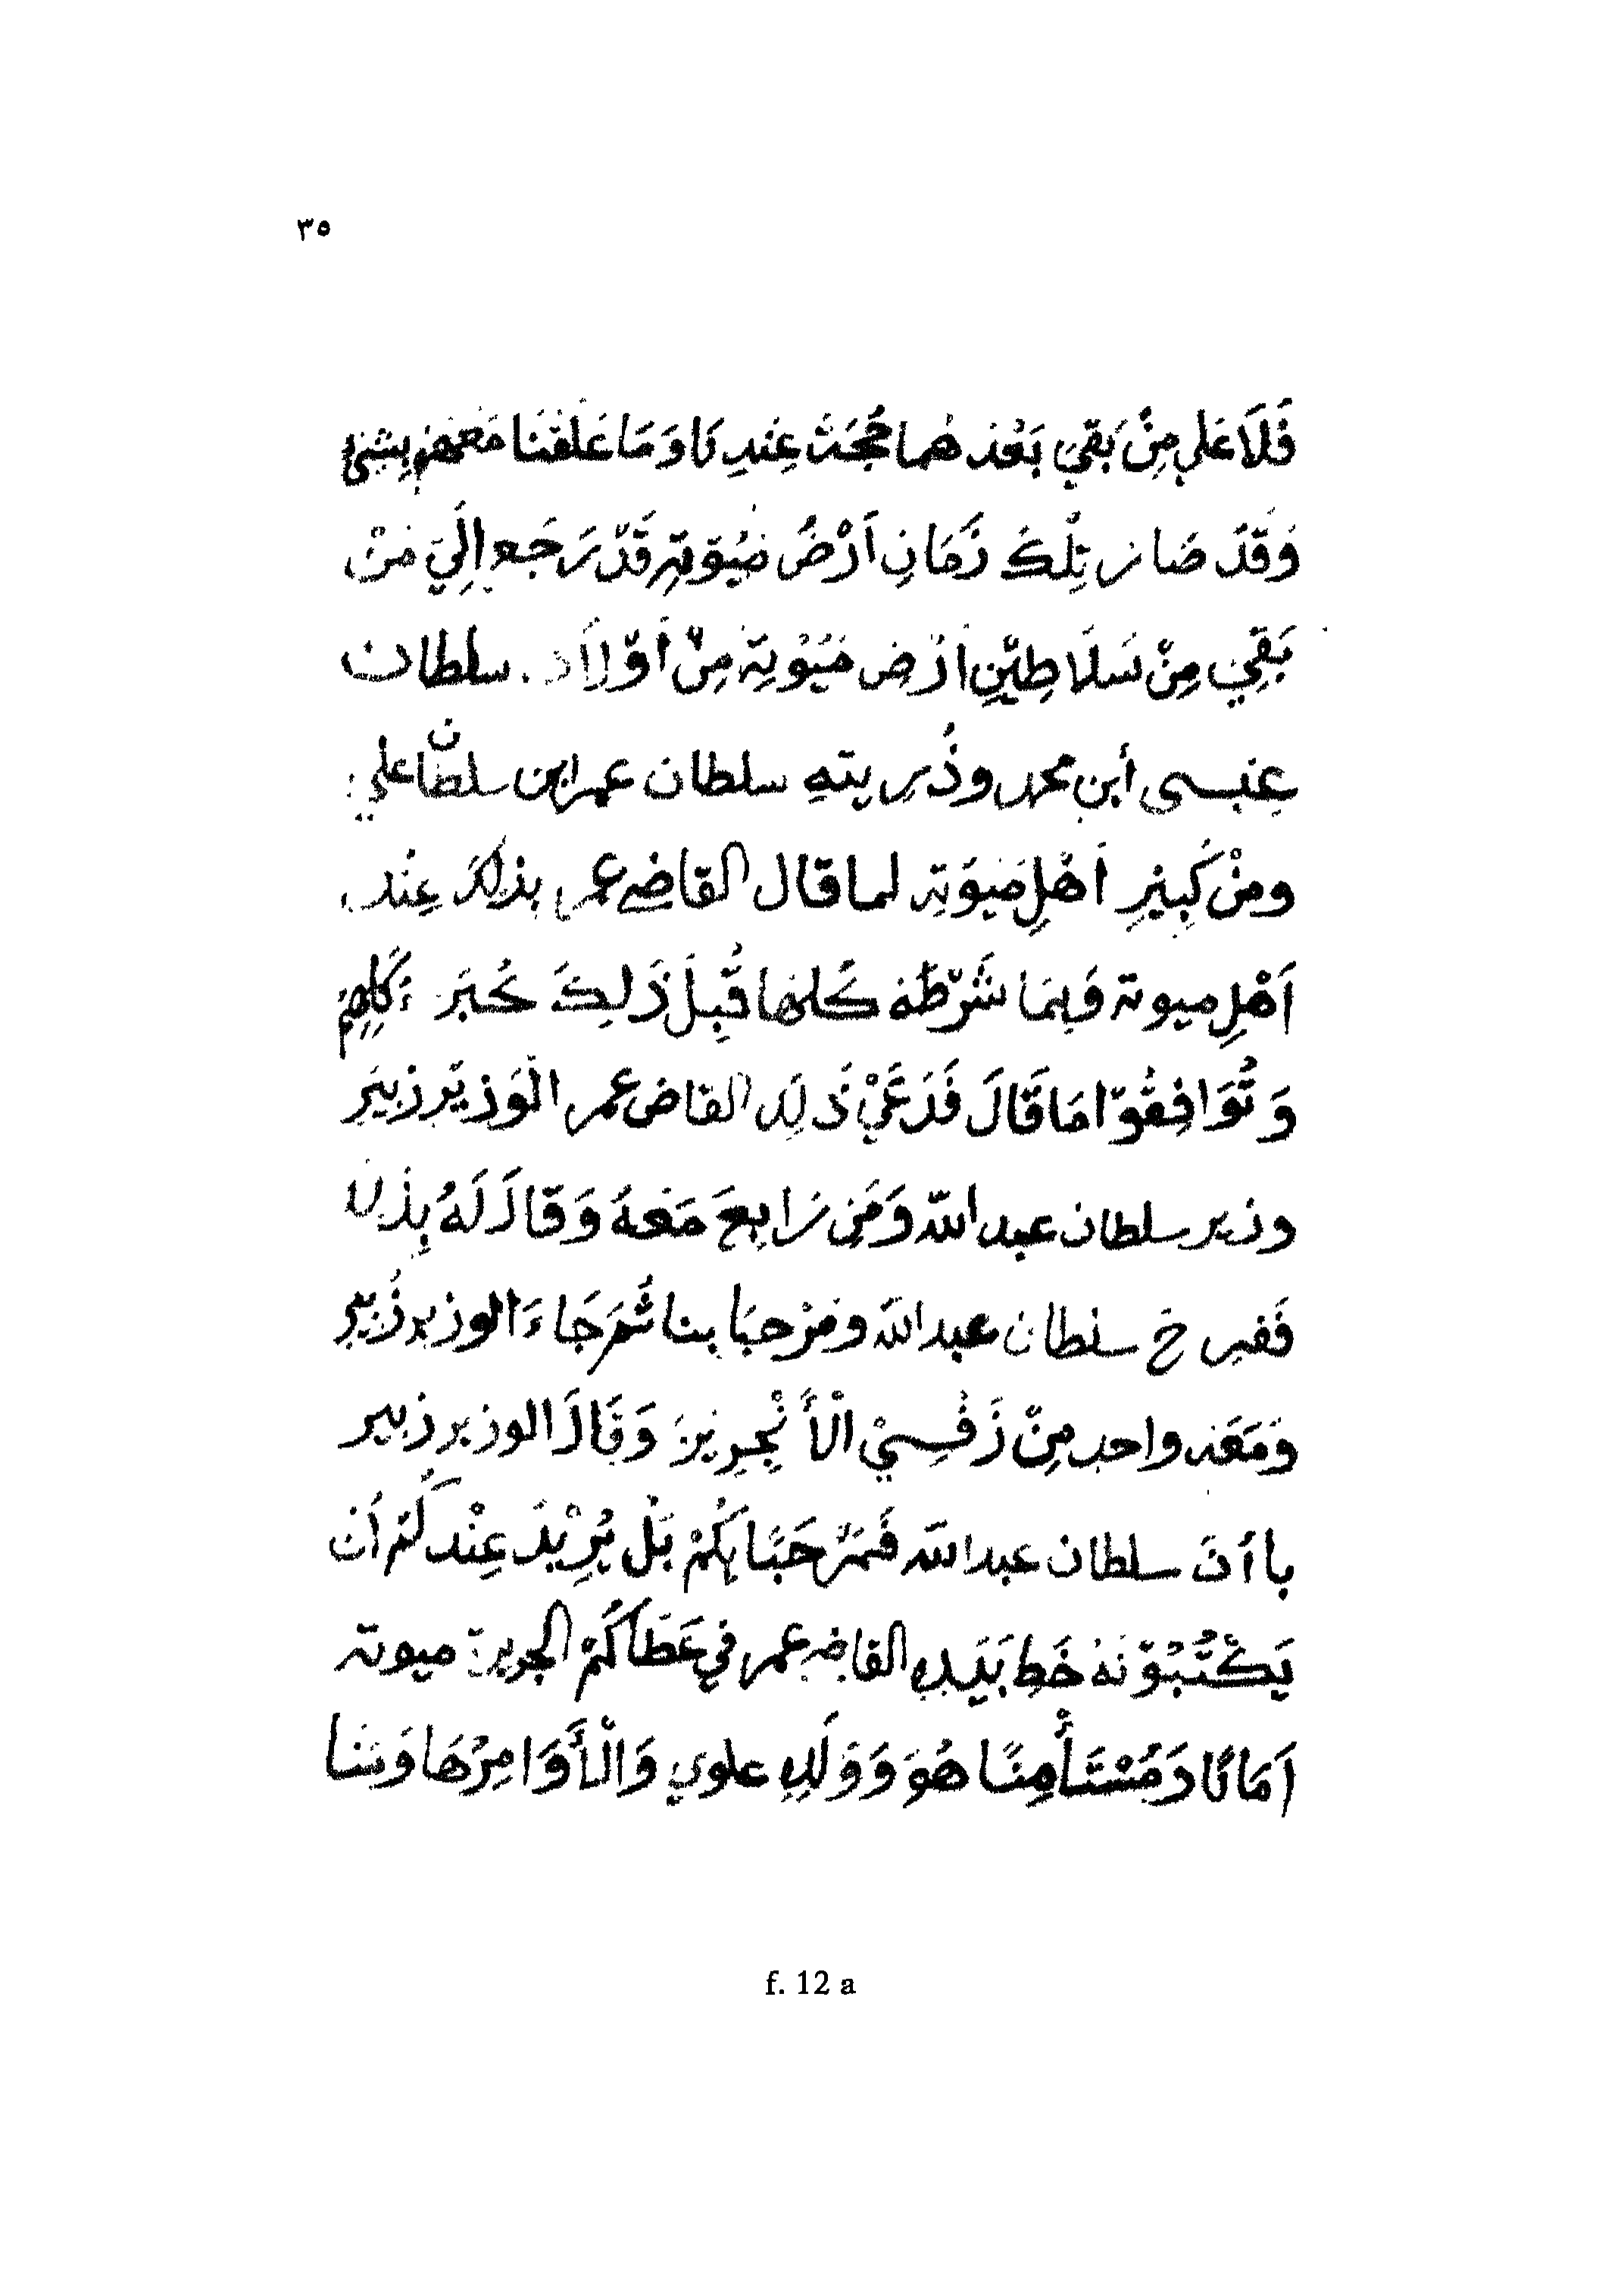 ٣٥
فَلَا عَلىٰ مِنْ بَقِيَ بَعْدَ هُمَا مُحُجَتْ عِنْدِ نَا وَمَا عَلَقْنَا مَعَهُمْ بِشَئٍ
وَقَدْ صَارَ تِلْكَ زَمَانِ اَرْضُ مَيُوْتِهِ قَدْ رَجَعَ إِلَيَ مَنْ
بَقِيَ مِنْ سَلَاطِيْنِ اَرْضِ مَيُوْتِهْ مِنْ أَوْلَادِ سلطان
عِيْسى أبن محمد وذُرِيتهِ سلطان عمر ابن سلطان علي
ومِنْ كَبِيْرِ أَهْلِ مَيَوْتِه لما قال القاضى عمر بذلكَ عِنْدَ
اَهْلِ ميوته وَبِمَا شَرْطُهُ كُلهَا قُبِلَ ذَلِكَ كُبَرَءَ كُلِهِمْ
وَتُوَافِقُوْا مَا قَالَ فَدَعَيْ ذَلِكَ القاض عمر الْوَزيْر زبَيْر
وزير سلطان عبد اللّه وَمَنِ رَابِعَ مَعَهُ وَقَالَ لَهُ بِذَلك
فَفرح سلطان عبد اللّه ومَرْحبَا بنا ثُمَ جَاءَ الوزير زُبَيْر
وَمَعَه واحد مِنْ زَفْسِيْ الْأَنْجِرِيْزِ وَقَالَ الوزير زبير
بأنَّ سلطان عبد اللّه فَمَرْحَبًا بِكُمْ بَلْ يُرِيْدُ عِنْدَكُمْ أَن
يَكْتُبُوْنَهُ خَطِ بَيَدِ القاضى عمر فِي عَطَاكُمْ الجريزة ميوته
اَمَانًا وَمُسْتَأْمِنًا هُوَ وَوَلَدِ علوي وَالْأَوَامِرُهَا وَمَنَا
f. 12 a